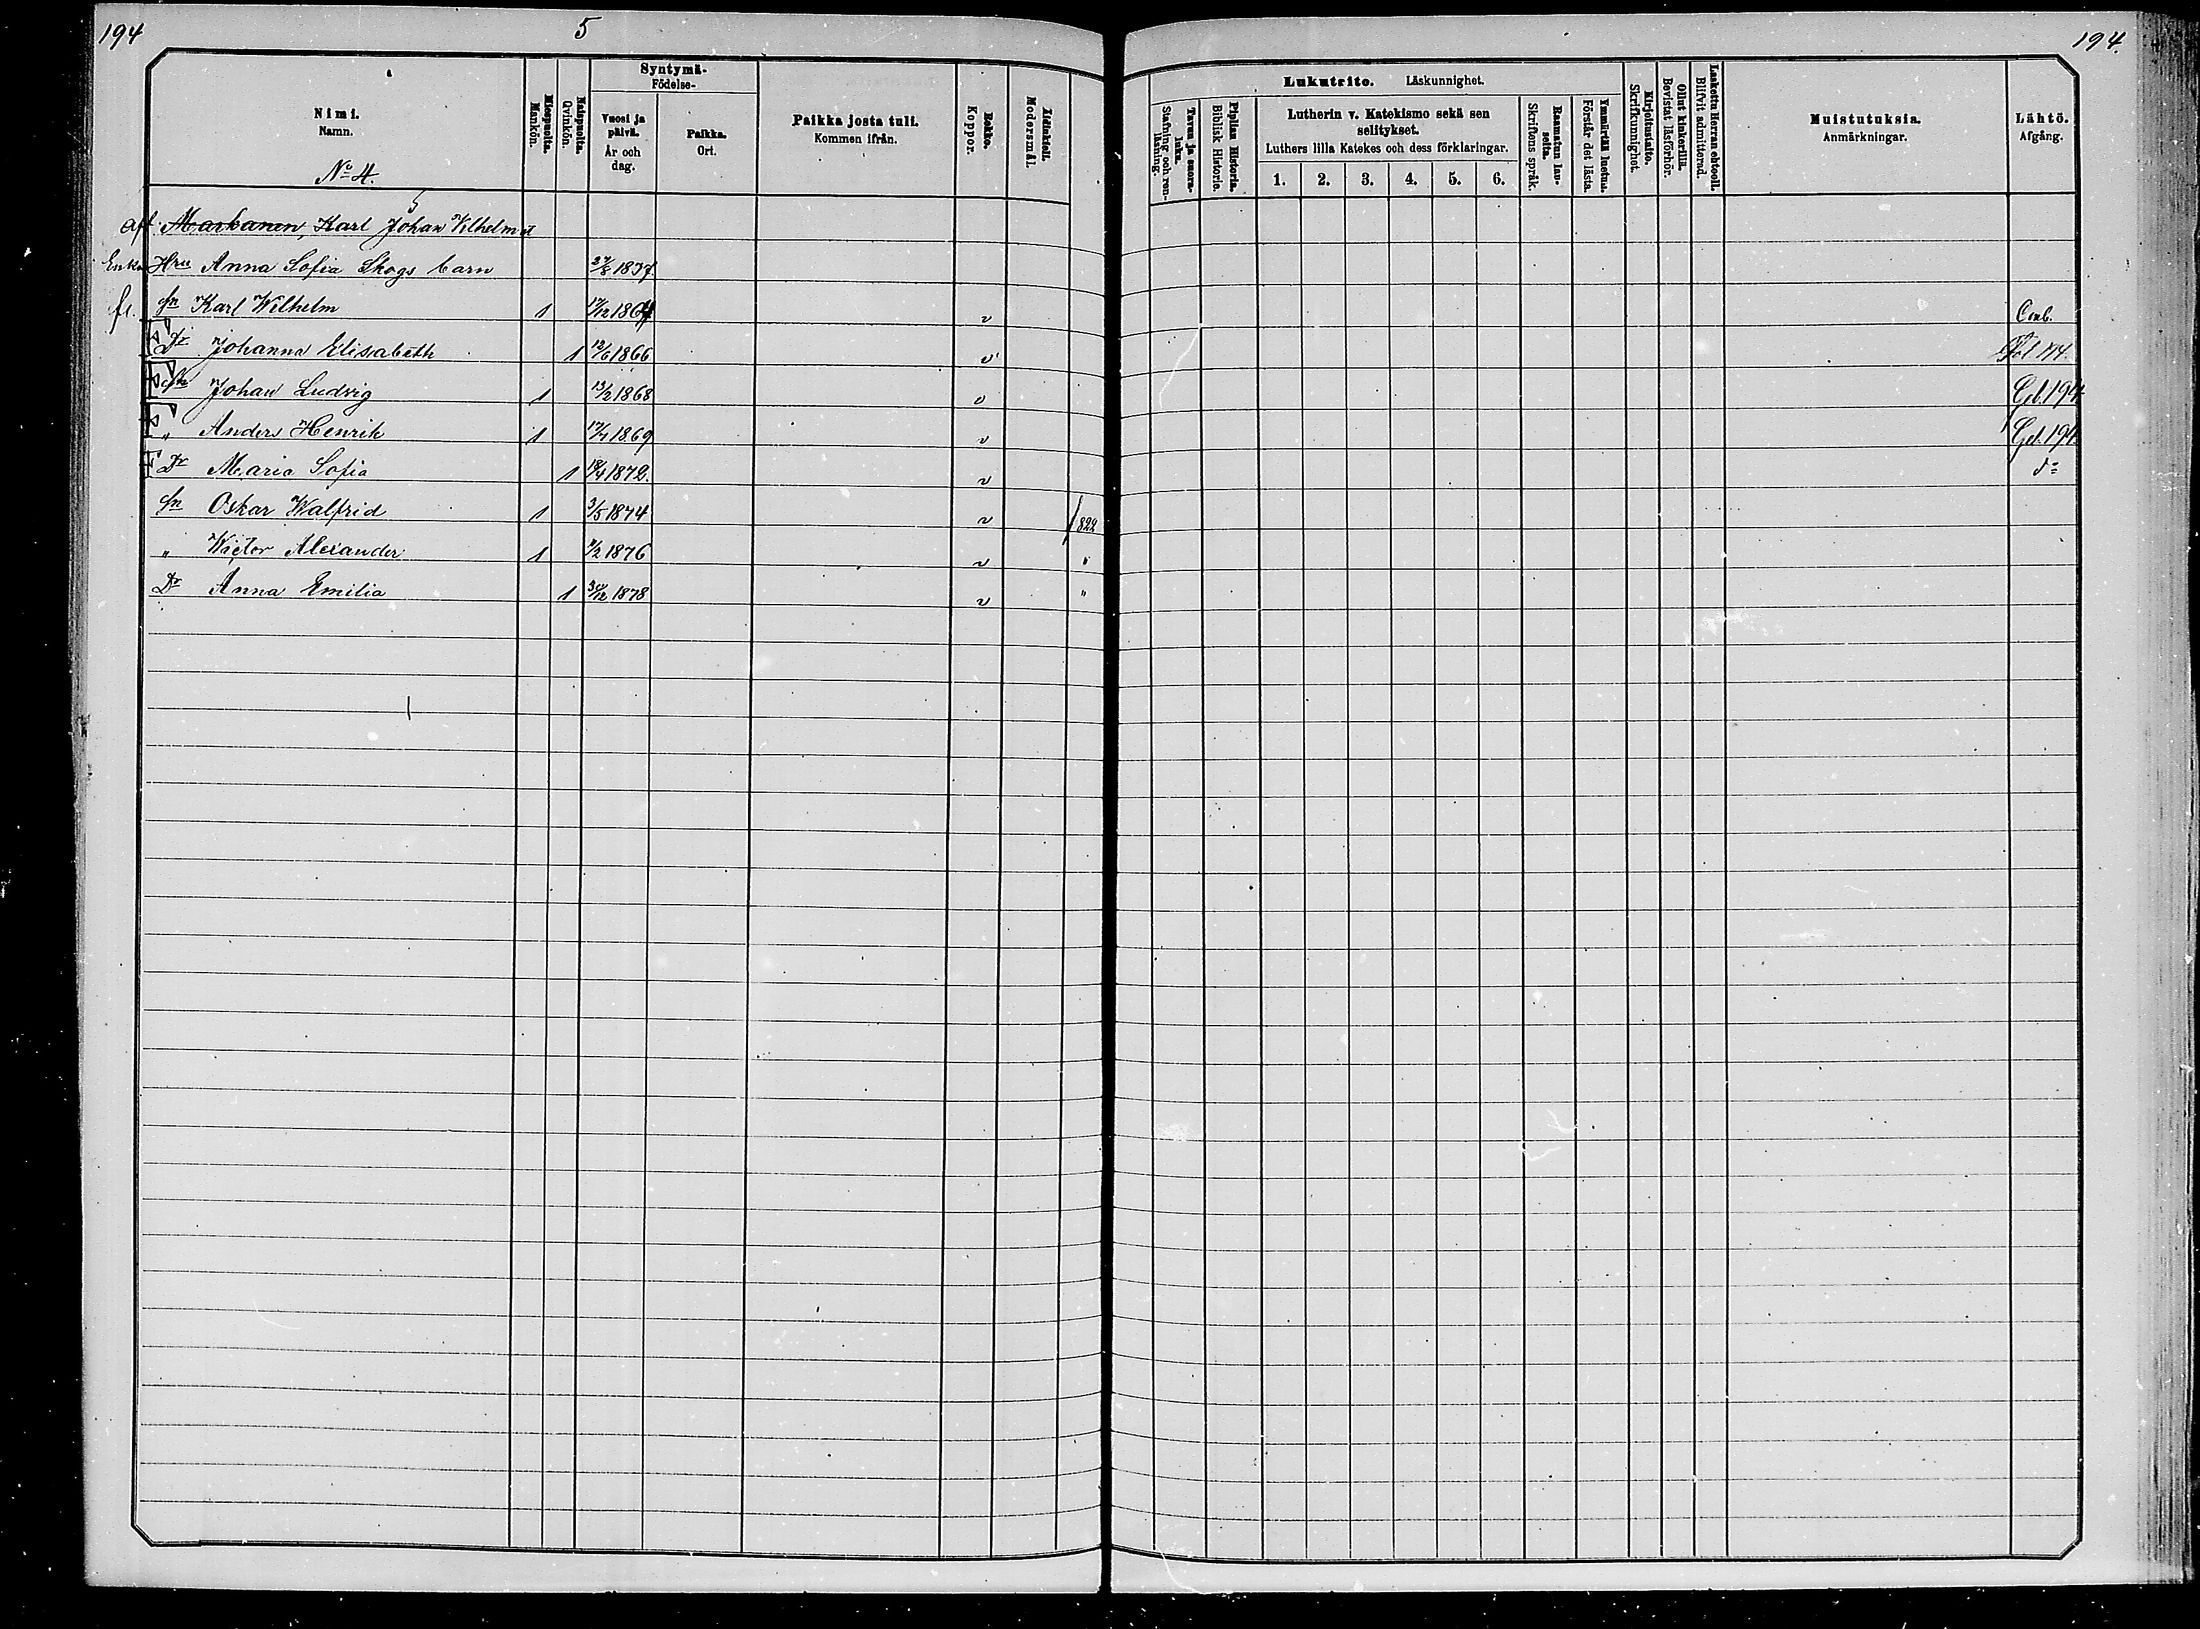 194
5
194.
Nimi.
Namn.
No 4.
Miespuolta.
Mankön.
Naispuolta.
Qvinkön.
Syntymä-
Födelse-
Vuosi ja
päivä.
År och
dag.
Paikka.
Ort.
Paikka josta tuli.
Kommen ifrån.
Rokko.
Koppor.
Äidinkieli.
Modersmål.
Lukutaito. Läskunnighet.
Tavuu ja suora-
luku.
Stafning och ren-
läsning.
Piplian Historia.
Biblisk Historie.
Lutherin v. Katekismo sekä sen
selitykset.
Luthers lilla Katekes och dess förklaringar.
1. 2. 3. 4. 5. 6.
Raamatun lau-
seita.
Skriftens språk.
Ymmärtää luetun.
Förstår det lästa.
Kirjoitustaito.
Skrifkunnighet.
Ollut kinkerillä.
Bevistat läsförhör.
Laskettu Herran ehtool.
Blifvit admitterad.
Muistutuksia.
Anmärkningar.
Lähtö.
Afgång.
Aft. Markanen, Karl Johan Vilhelm
Enka Hru Anna Sofia Skogs barn 27/8 1837
fl. Sn Karl Wilhelm 1 17/12 1864 v
Dr Johanna Elisabeth 1 12/6 1866 v
Sn Johan Ludvig 1 13/2 1868 v 194
" Anders Henrik 1 17/4 1869 v
Dr Maria Sofia 1 18/4 1872. v do
Sn Oskar Walfrid 1 3/5 1874 v 822
" Victor Alexander 1 7/2 1876 v "
Dr Anna Emilia 1 30/12 1878 v "